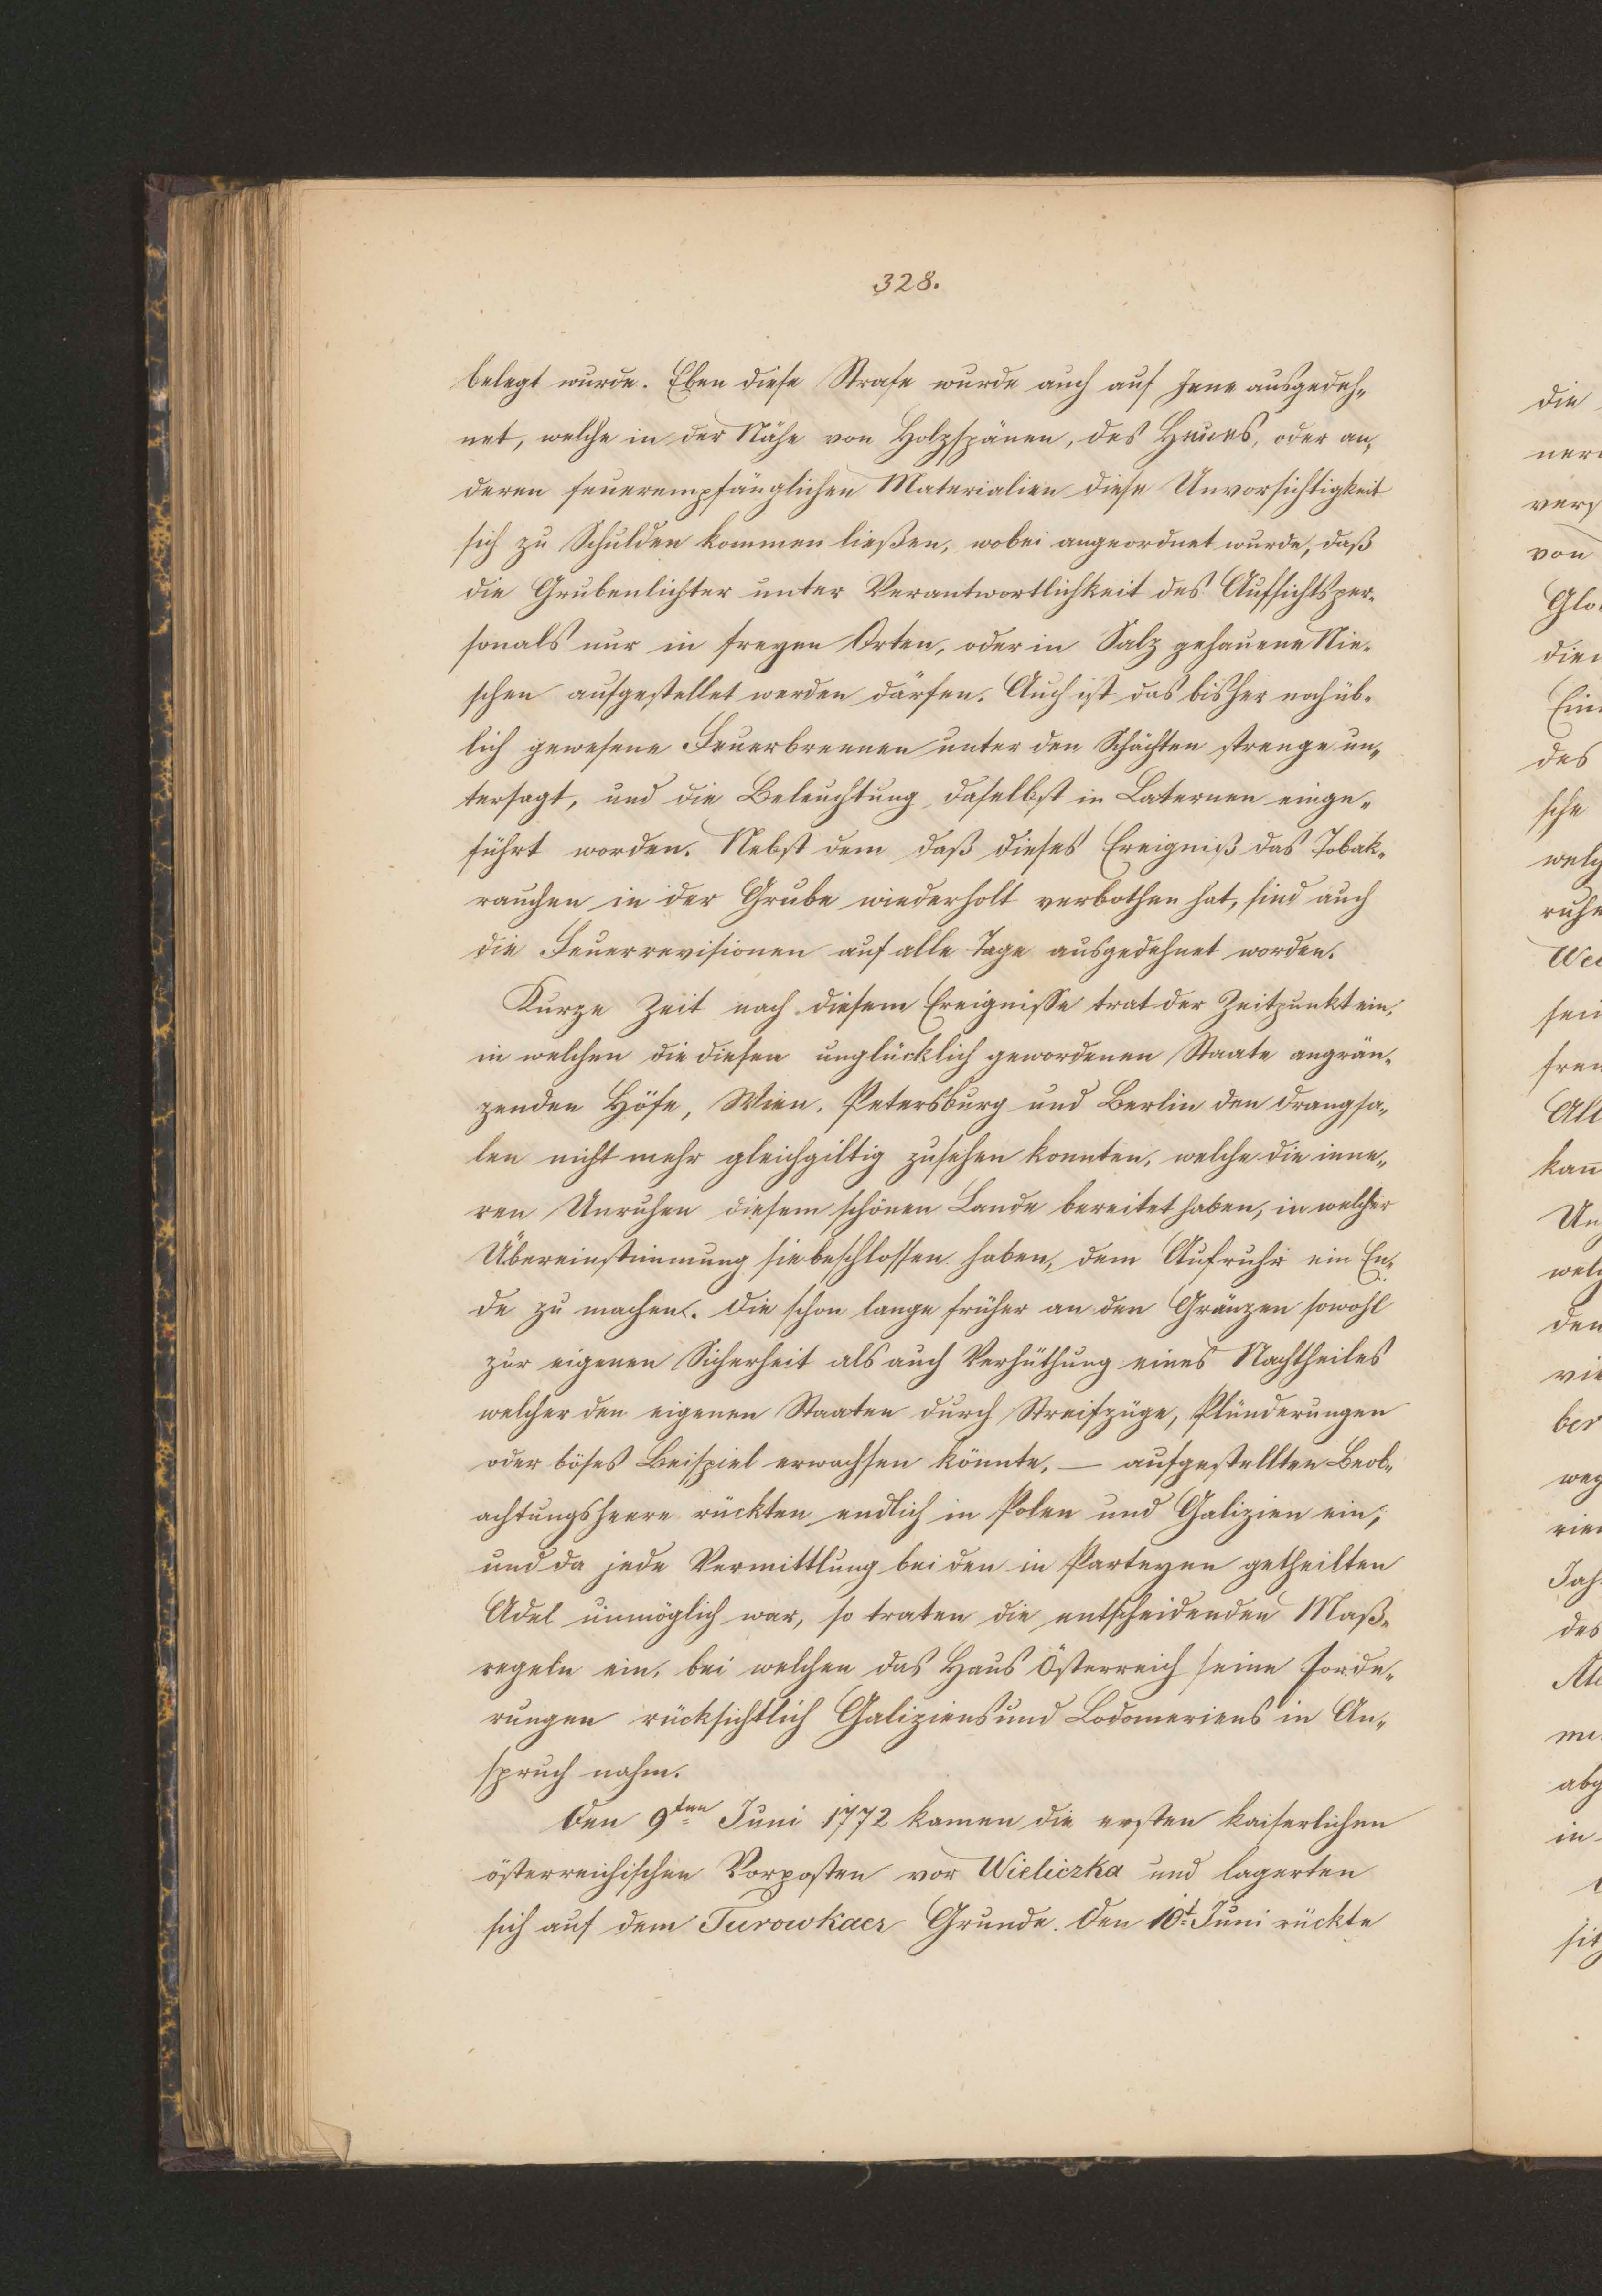 328.
belegt wurde. Eben diese Strafe wurde auch auf Jene ausgedeh„
net, welche in der Nähe von Holzspänen, des Heues, oder an„
deren feuerempfänglichen Materialien diese Unvorsichtigkeit
sich zu Schulden kommen ließen, wobei angeordnet wurde, daß
die Grubenlichter unter Verantwortlichkeit des Aufsichtsper„
sonals nur in freyen Orten, oder in Salz gehauene Nie„
schen aufgestellet werden därfen. Auch ist das bisher noch üb„
lich gewesene Feuerbrennen unter den Schächten strenge un„
tersagt, und die Beleuchtung daselbst in Laternen einge„
führt worden. Nebst dem daß dieses Ereigniß das Tobak„
rauchen in der Grube wiederholt verbothen hat, sind auch
die Feuerrevisionen auf alle Tage ausgedehnet worden.
Kurze Zeit nach diesem Ereignisse trat der Zeitpunkt ein,
in welchen die diesen unglücklich gewordenen Staate angrän„
zenden Höfe, Wien, Petersburg und Berlin den Drangsa„
len nicht mehr gleichgiltig zusehen konnten, welche die inne„
ren Unruhen diesem schönen Lande bereitet haben, in welcher
Übereinstimmung sie beschlossen haben, dem Aufruhr ein En„
de zu machen. Die schon lange früher an den Gränzen sowohl
zur eigenen Sicherheit als auch Verhüthung eines Nachtheiles
welcher den eigenen Staaten durch Streifzüge, Plünderungen
oder böses Beispiel erwachsen könnte, — aufgestellten Beob„
achtungsheere rückten endlich in Polen und Galizien ein;
und da jede Vermittlung bei den in Parteyen getheilten
Adel unmöglich war, so traten die entscheidenden Maß„
regeln ein, bei welchen das Haus Österreich seine Forde„
rungen rücksichtlich Galiziens und Lodomeriens in An„
spruch nahm.
Den 9ten Juni 1772 kamen die ersten kaiserlichen
österreichischen Vorposten vor Wieliczka und lagerten
sich auf dem Turowkaer Grunde. Den 10t Juni rückte
die
von
des
sche